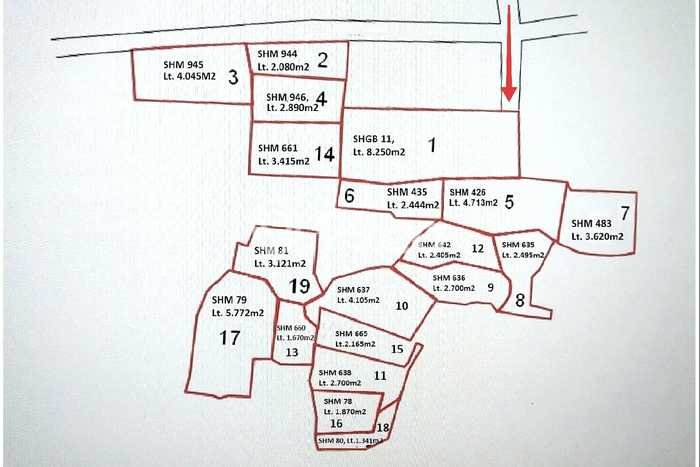 SHM 944
Lt. 2.080m2
2
SHM 945
Lt. 4.045M2
3
SHM 946,
Lt. 2.890m2
4
SHM 661
Lt. 3.415m2
14
SHGB 11,
Lt. 8.250m2
1
6
SHM 435
Lt. 2.444m2
SHM 426
Lt. 4.713m2
5
7
SHM 483
Lt. 3.620m2
SHM 81
Lt. 3.121m2
19
SHM 642
Lt. 2.405m2
12
SHM 635
Lt. 2.495m2
8
SHM 636
Lt. 2.700m2
9
SHM 637
Lt. 4.105m2
10
SHM 79
Lt. 5.772m2
17
SHM 660
Lt. 1.670m2
13
SHM 665
Lt.2.165m2
15
SHM 638
Lt. 2.700m2
11
SHM 78
Lt. 1.870m2
16
18
SHM 80, Lt.1.341m2